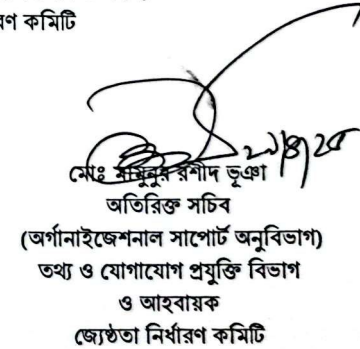 রণ কমিটি
২৯/৪/২৫
মোঃ মামুনুর রশীদ ভূঞা
অতিরিক্ত সচিব
(অর্গানাইজেশনাল সাপোর্ট অনুবিভাগ)
তথ্য ও যোগাযোগ প্রযুক্তি বিভাগ
ও আহবায়ক
জ্যেষ্ঠতা নির্ধারণ কমিটি